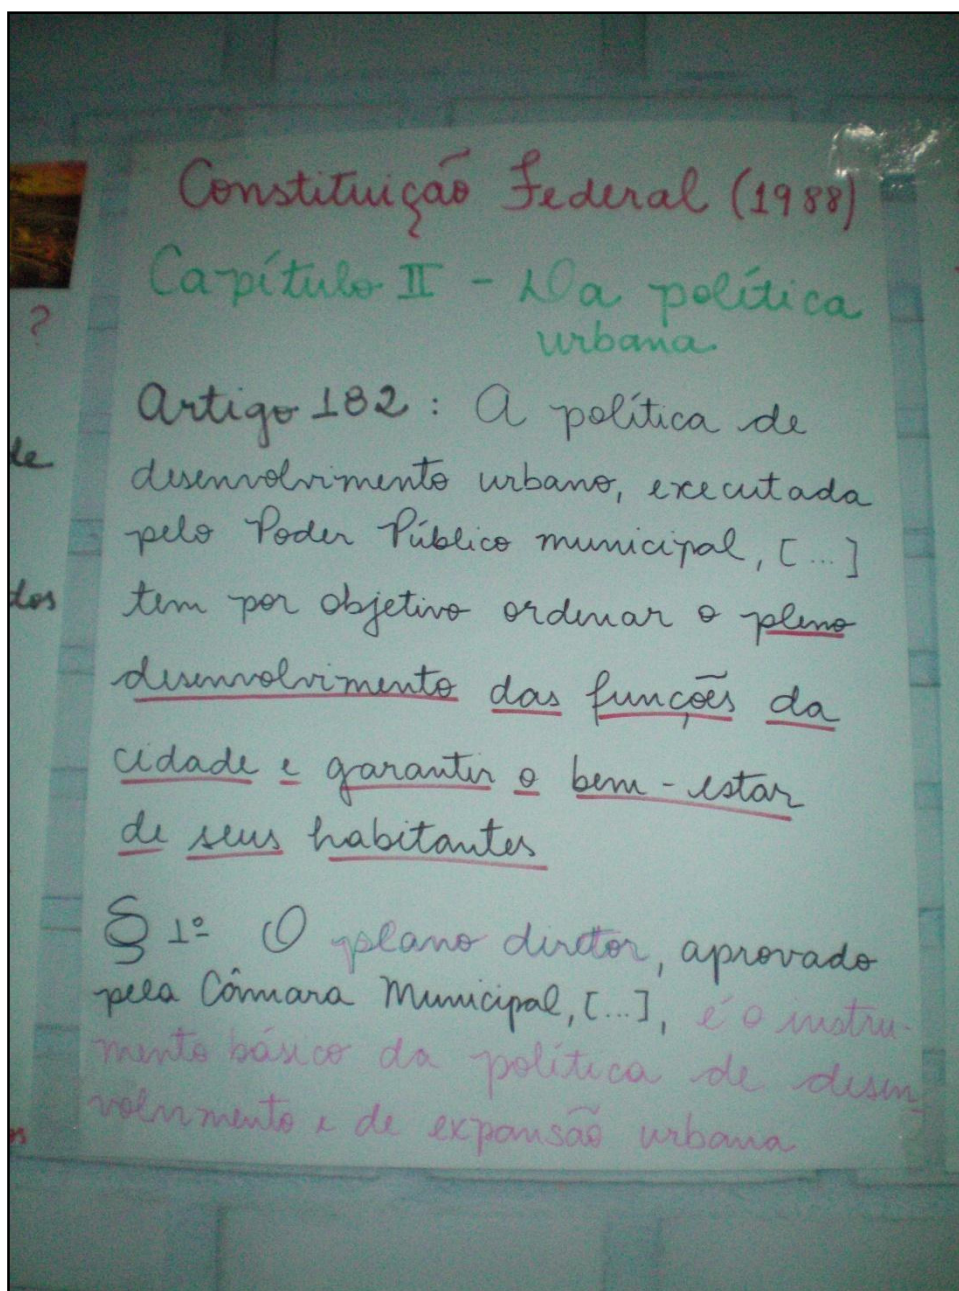 Constituição Federal (1988)
Capítulo II - Da política
urbana
?
Artigo 182: A política de
le
desenvolvimento urbano, executada
pelo Poder Público municipal, [...]
dos
tem por objetivo ordenar o pleno
desenvolvimento das funções da
cidade e garantir o bem-estar
de seus habitantes
§ 1º O plano diretor, aprovado
pela Câmara Municipal, [...], é o instru-
mento básico da política de desen-
volvimento e de expansão urbana